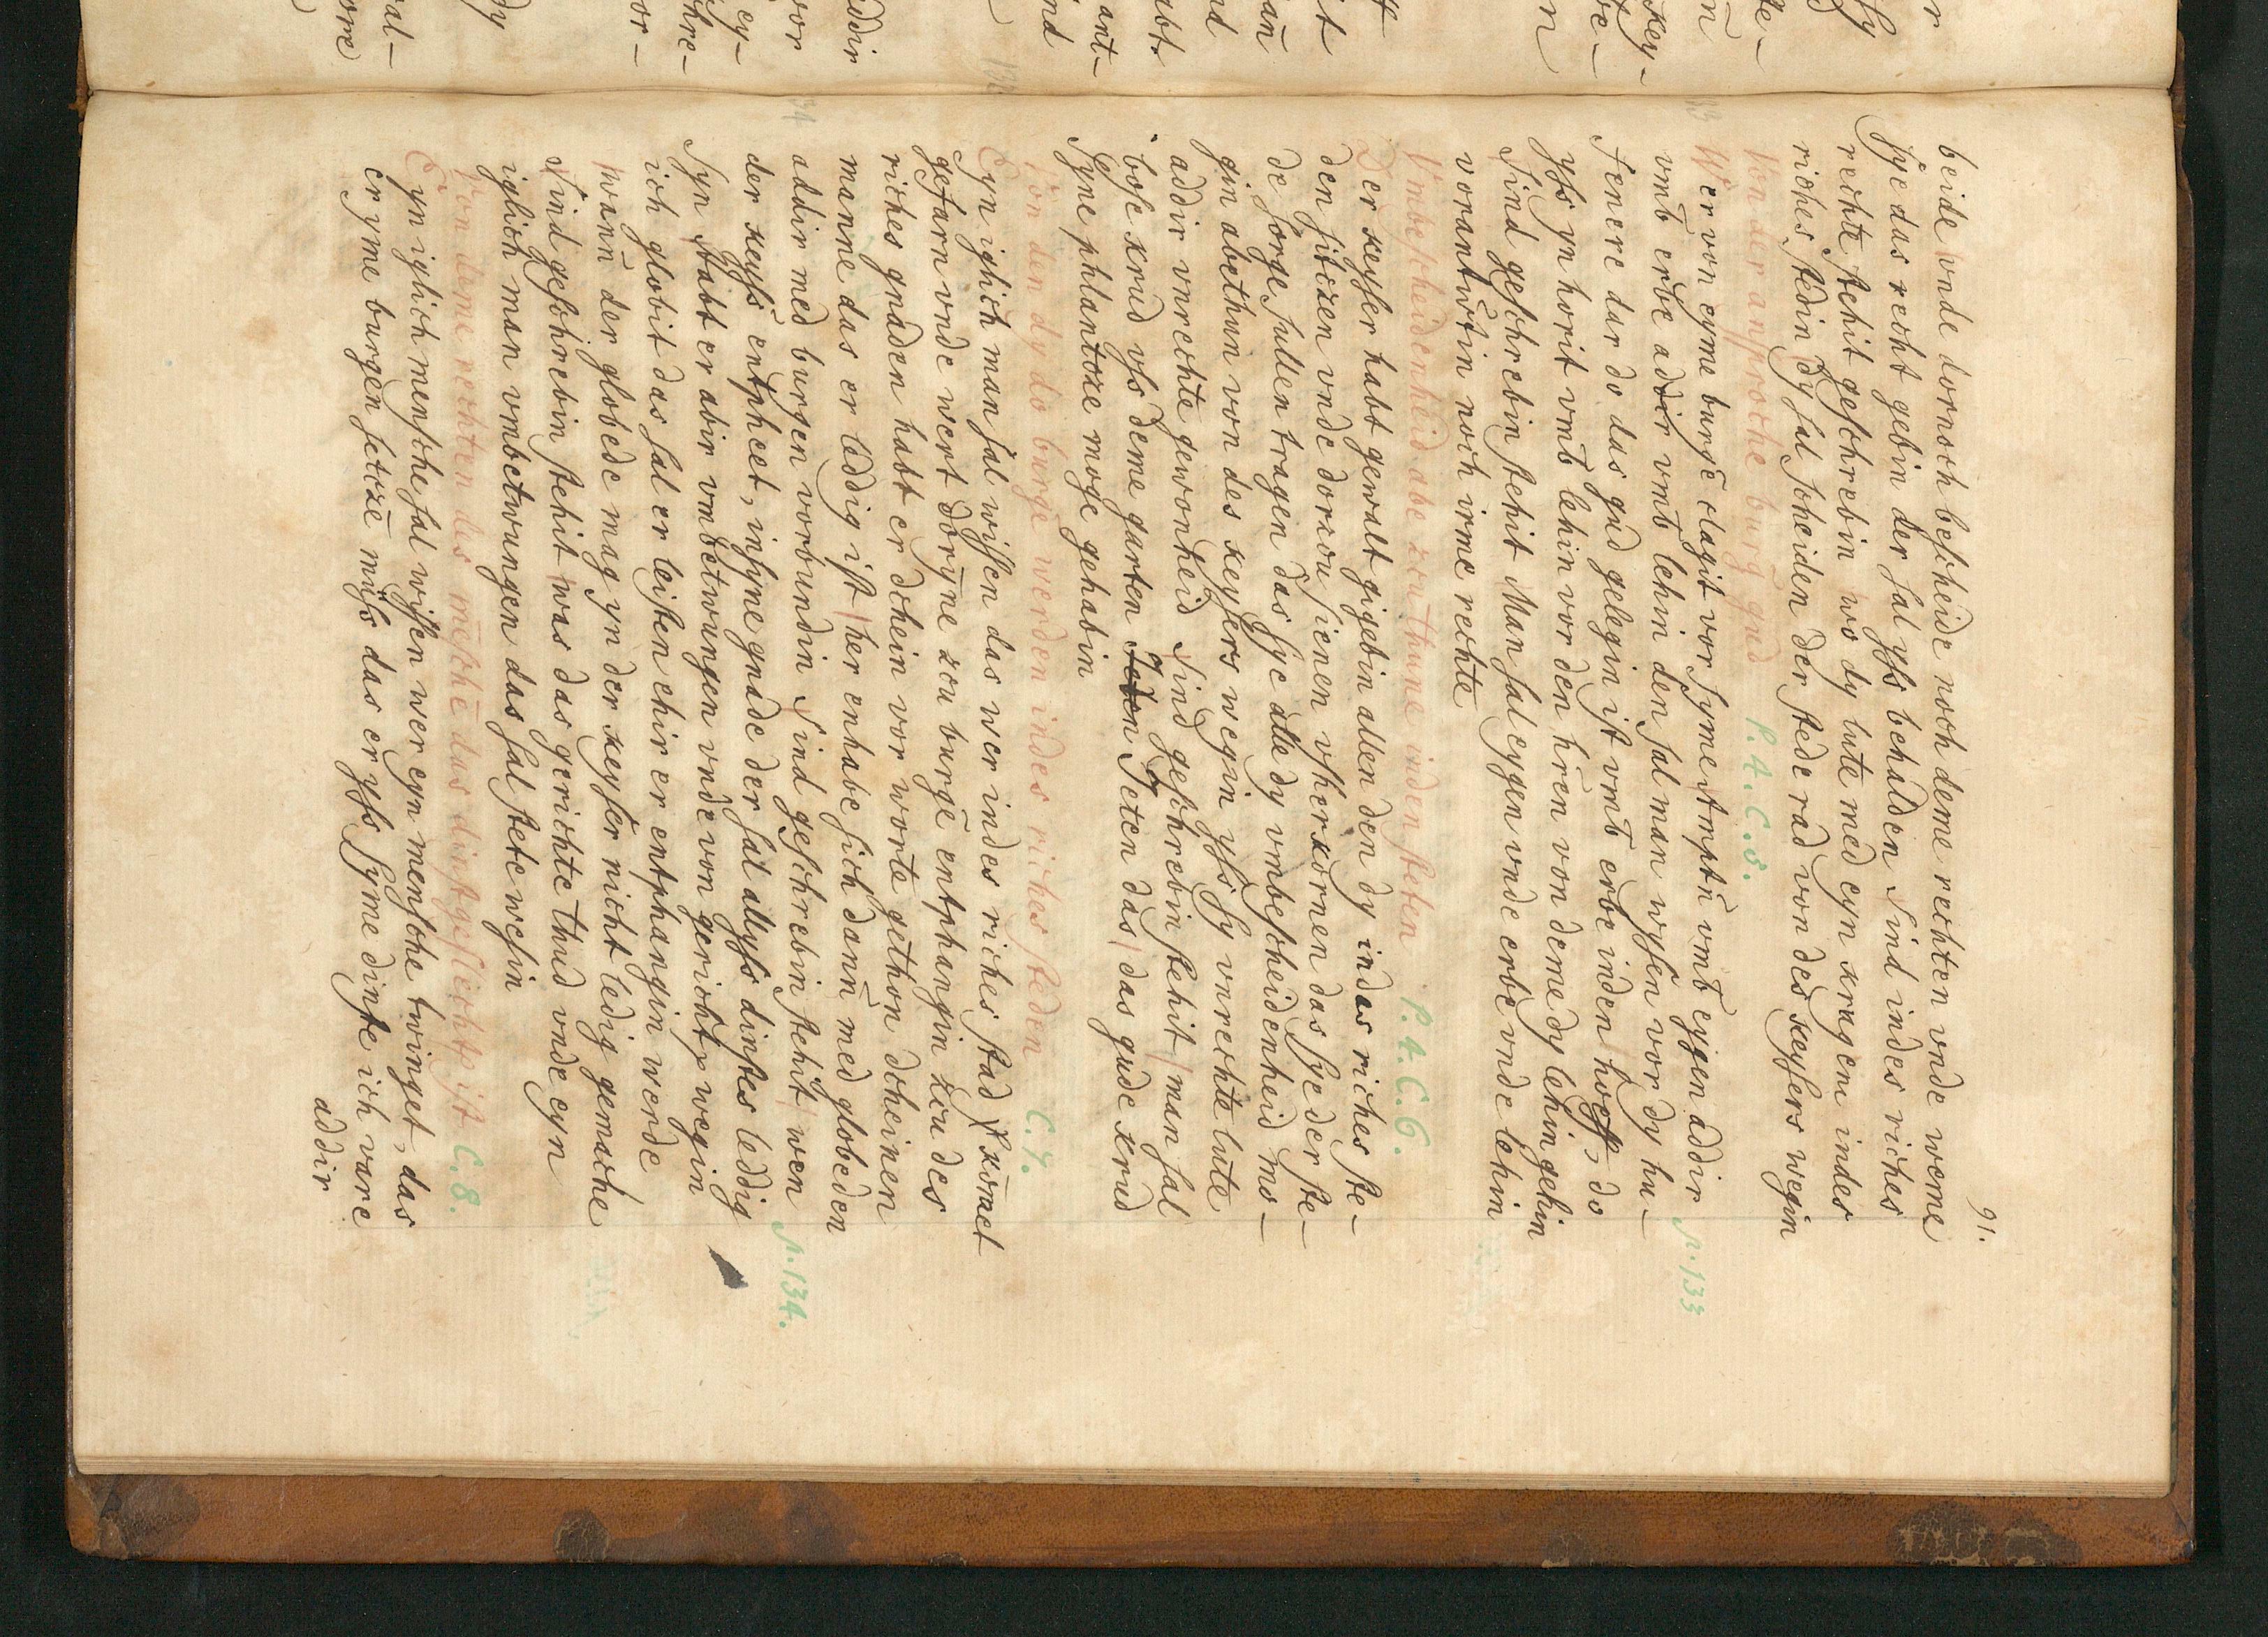 91.
beide vnde dornoch bescheide noch deme rechten vnde weme
sye das recht gebin der sal yſs behalden Sind indes riches
rechte stehit geschrebin wo dy lute med eyn krigen indes
riches stedin dy sal scheiden der stede rad von des keysers wegin
Von der ansproche burg gud P. 4. C. 5.
Wer von eyme burgē clagit vor syme Amptū vmb eygen addir p. 133
vmb erbe addir vmb lehin den sal man wysen vor dy hu-
senere dar do das gud gelegin ist vmb erbe inden hoff, do
yſs yn horit vmb lehin vor den hiren von deme dy lehin gehin
Sind geschrebin stehit Man sal eygen vnde erbe vnde lehin
vorantwˢtin noch irme rechte
Vmbescheidenheid abe zcu thune inden steten P. 4. C. 6.
Der keyser habt gewalt gigebin allen den dy indas riches ste-
den sitczen vnde dorzou sienen vſzerkornen das sye der ste-
de sorge sullen tragen das sye alle dy vmbescheidenheid mo-
gin abethun von des keysers wegin yſs sy vnrechte lute
addir vnrechte gewonheid Sind geschrebin stehit man sal
bose krud vſs deme garten Jeten das das gude krud
syne phlantoze moge gehabin
Von den dy do burge werden indes riches steden C. 7.
Eyn iglich man sal wissen das wer indes riches stad komet
gefarn vnde wert doryne zcu burgē entphangin zcu des
riches gnaden habt er dehein vor worte gethon deheinen
manne das er leddig ist her enhabe sich dann̄ med globeden
addir med burgen vorbundin Sind geschrebin stehit wen p. 134.
der keyſs entpheet, insyne gnade der sal allyſs dinstes leddig
syn habt er abir vmbetwungen vnde von gericht wegin
ich globit das sal er leisten ehir er entphangin werde
wann̄ der globede mag yn der keyser nicht ledig gemache
Sind geschrebin stehit was das gerichte thud vnde eyn
iglich man vmbetwungen das sal stete wesin
Von deme rechten des mēsche das dinstgeslechte ist C. 8.
Eyn iglich mensche sal wissen wer eyn mensche twinget, das
er yme burgen setcze muſs das er yſs syme dinste ich vare
addir